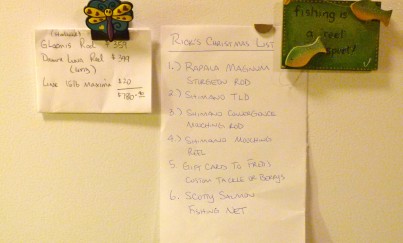 Rod $359
Reel $399
(Line)
Line 15lb Maxima $20
$780.00
Rick's Christmas List
1.) Rapala Magnum
Sturgeon Rod
2.) Shimano TLD
3.) Shimano Convergence
Mooching Rod
4.) Shimano Mooching
Reel
5. Gift Card To Fred's
Custom Tackle or Berry's
6. Scotty Salmon
Fishing Net
fishing is
a reel
sport!